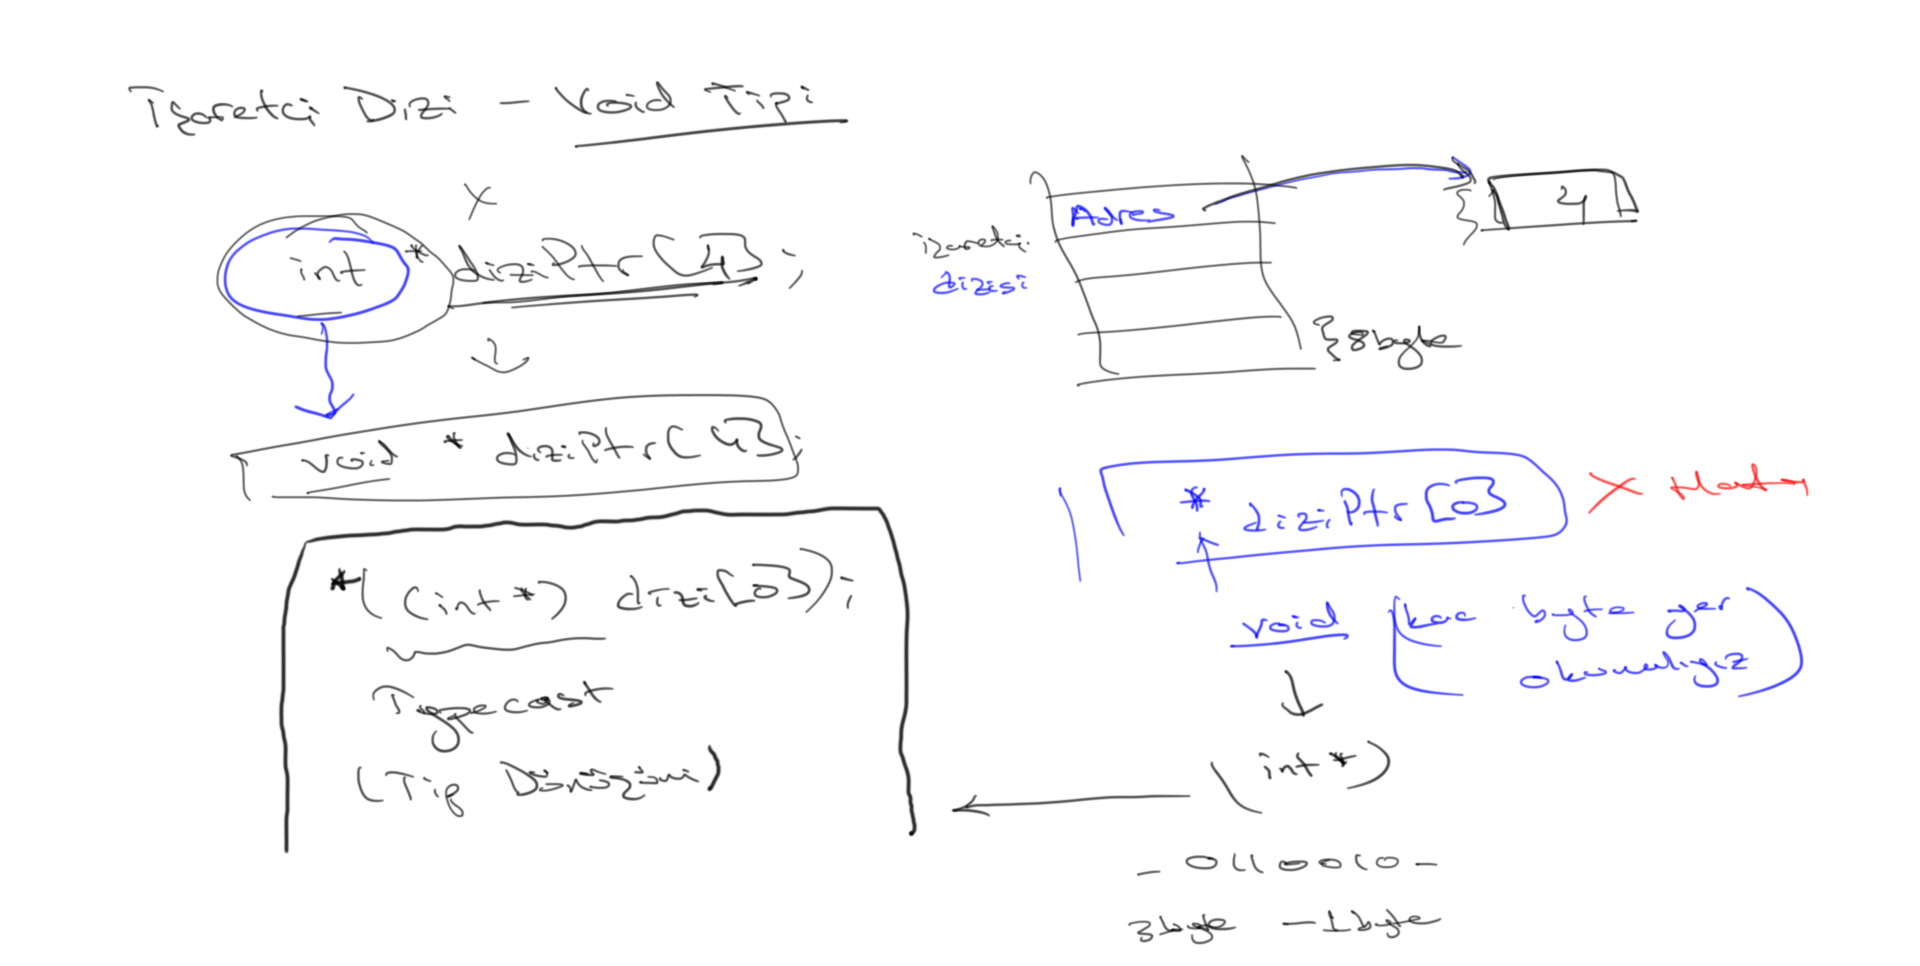 İşaretçi Dizi - Void Tipi
X
int * diziPtr[4];
void * diziPtr[4];
*((int*) dizi[0]);
Typecast
(Tip Dönüşümü)
Adres
4
işaretçi
dizisi
}8byte
* diziPtr[0] X Hata
void (kac byte yer
okumalıyız)
(int*)
- 0110010 -
3byte - 1byte